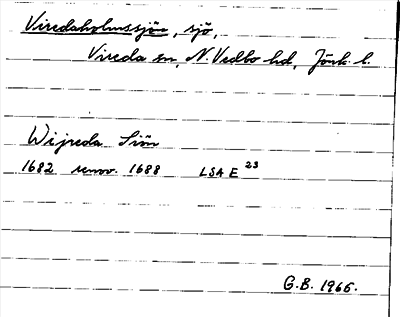 Viredaholmssjön, sjö,
Vireda sn, N. Vedbo hd, Jönk. l.
Wijreda Siön
1682 renov. 1688 LSA E 23
G.B. 1966.